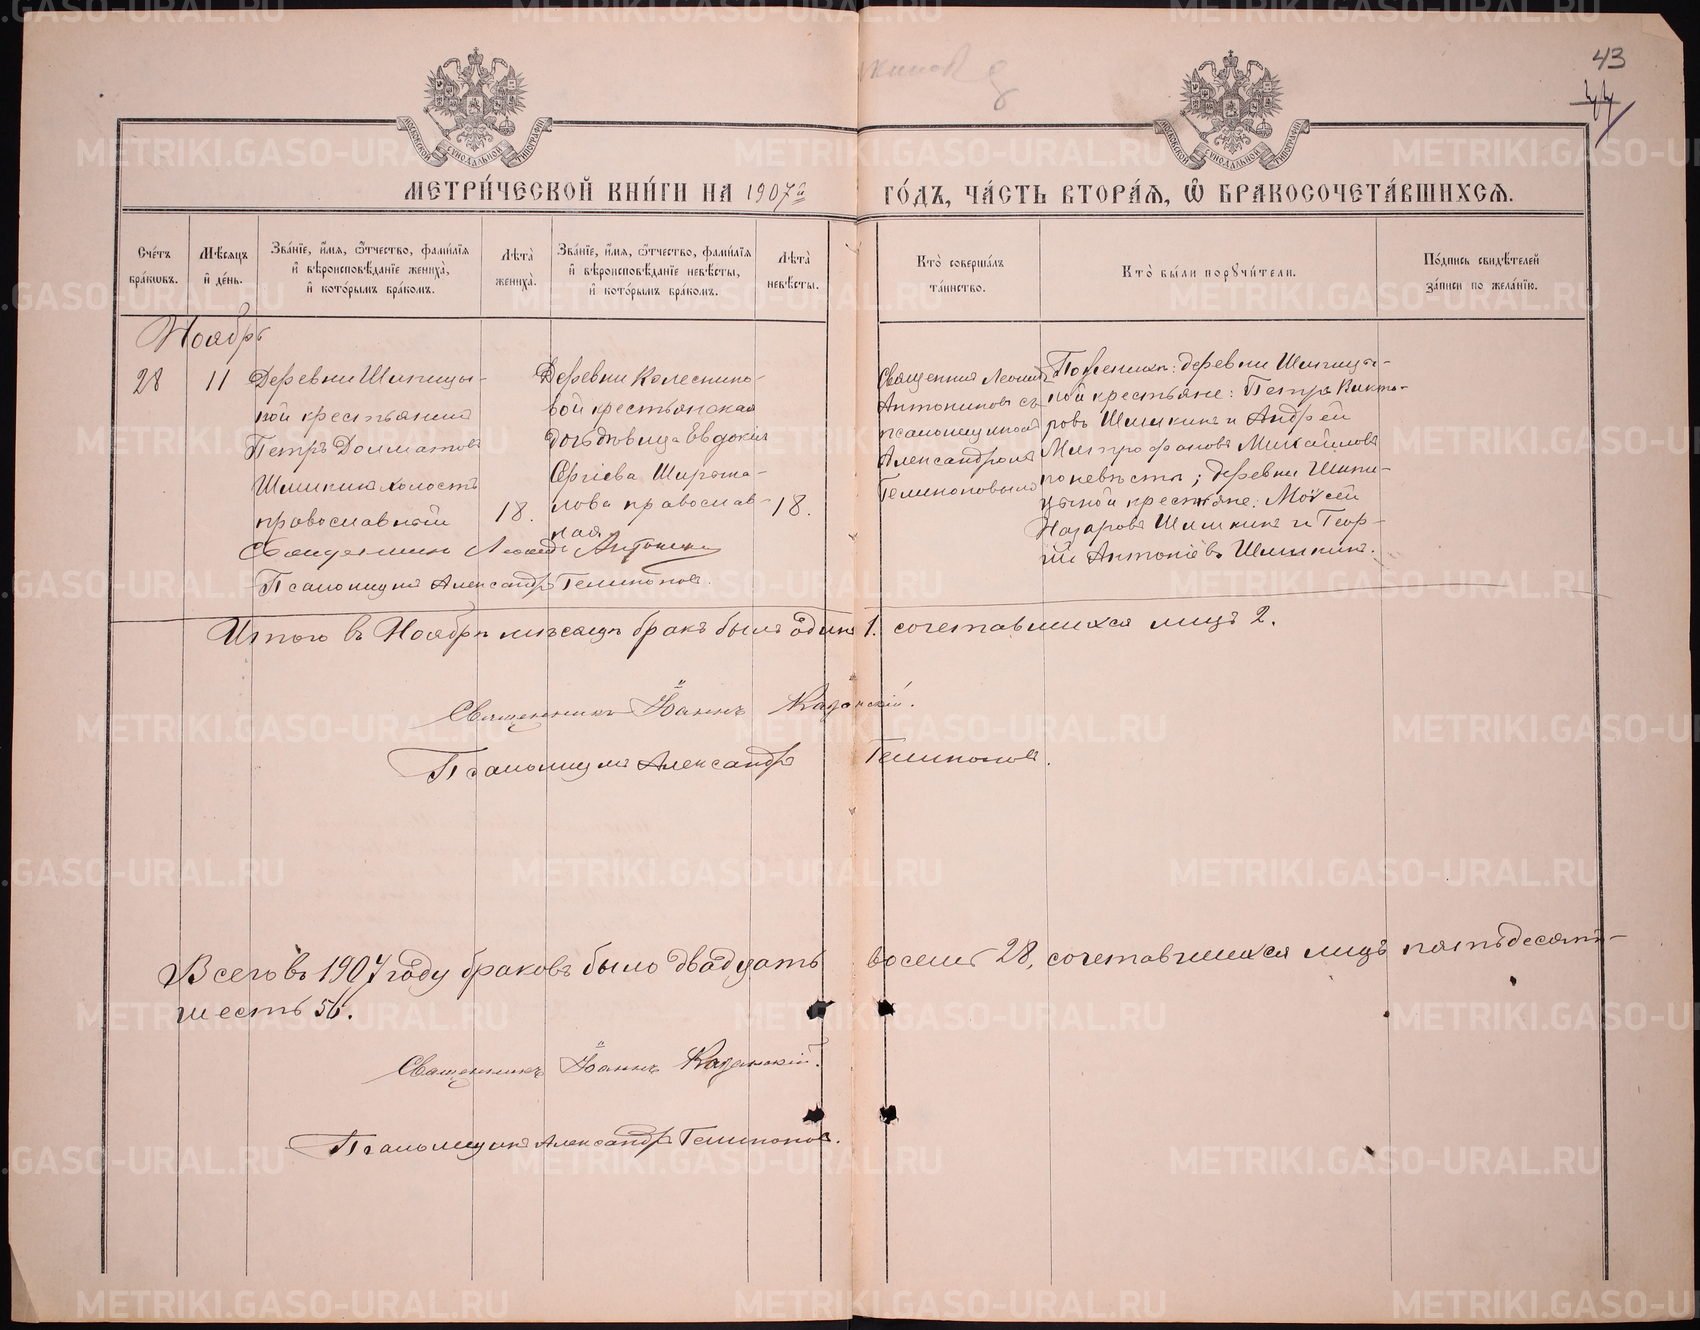 43
44
МОСКОВСКОЙ СУНОДАЛЬНОЙ ТИПОГРАФІИ
МОСКОВСКОЙ СУНОДАЛЬНОЙ ТИПОГРАФІИ
МЕТРИ́ЧЕСКОЙ КНИ́ГИ НА 1907й ГО́ДЪ, ЧА́СТЬ ВТОРА́Я, Ѽ БРАКОСОЧЕТА́ВШИХСЯ.
Сче́тъ
бра́кѡвъ.
Мѣ́сяцъ
и҆ де́нь.
Зва́нїе, и҆́мя, ѻ҆́тчество, фами́лїя
и҆ вѣроисповѣ́данїе жениха̀,
и҆ кото́рымъ бра́комъ.
Лѣта̀
жениха̀.
Зва́нїе, и҆́мя, ѻ҆́тчество, фами́лїя
и҆ вѣроисповѣ́данїе невѣ́сты,
и҆ кото́рымъ бра́комъ.
Лѣта̀
невѣ́сты.
Кто̀ соверша́лъ
та́инство.
Кто̀ бы́ли порꙋчи́тели.
По́дпись свидѣ́телей
за́писи по жела́нїю.
Ноябрь
28
11
Деревни Шипицы-
ной крестьянинъ
Петръ Долматовъ
Шишкинъ холостъ
православный
18.
Деревни Колеснико-
вой крестьянская
дочь дѣвица Евдокія
Сергіева
православ-
ная
18.
Священникъ Леонидъ
Антониновъ съ
псаломщикомъ
Александромъ
По женихѣ: деревни Шипицы-
ной крестьяне: Петръ Викто-
ровъ Шишкинъ и Андрей
Митрофановъ Михайловъ
по невѣстѣ; деревни Шипи-
цыной крестьяне: Моѵсей
Назаровъ Шишкинъ и Геор-
гій Антоніевъ Шишкинъ.
Священникъ Леонидъ
Псаломщикъ Александръ
Итого въ Ноябрѣ мѣсяцѣ бракъ былъ одинъ 1. сочетавшихся лицъ 2.
Священникъ Іоаннъ Казанскій.
Псаломщикъ Александръ
Всего въ 1907 году браковъ было двадцать восемь 28, сочетавшихся лицъ пятьдесятъ-
шесть 56.
Священникъ Іоаннъ Казанскій.
Псаломщикъ Александръ
METRIKI.GASO-URAL.RU